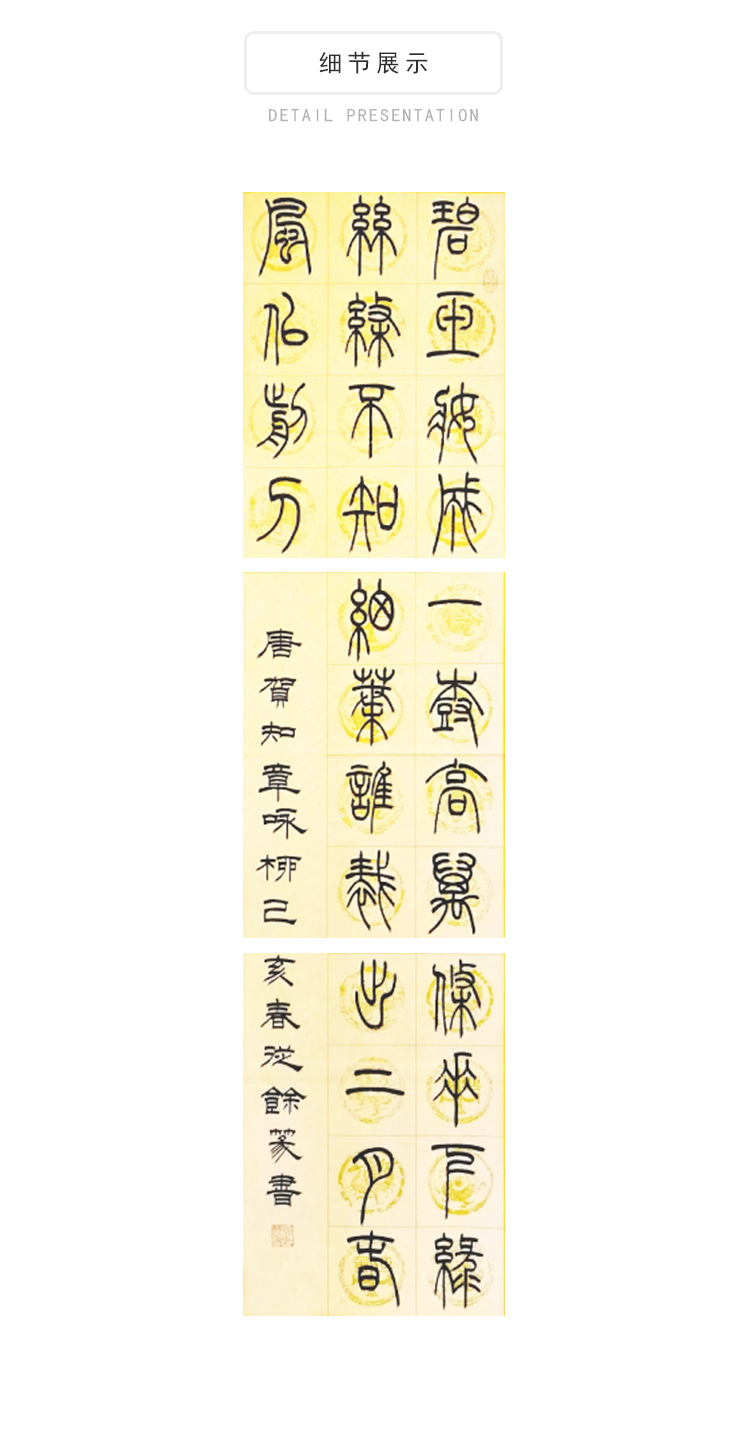 细节展示
DETAIL PRESENTATION
碧玉妝成一樹高萬條垂下綠
絲絛不知細葉誰裁出二月春
風佀前刀
唐賀知章咏柳己亥春從餘篆書